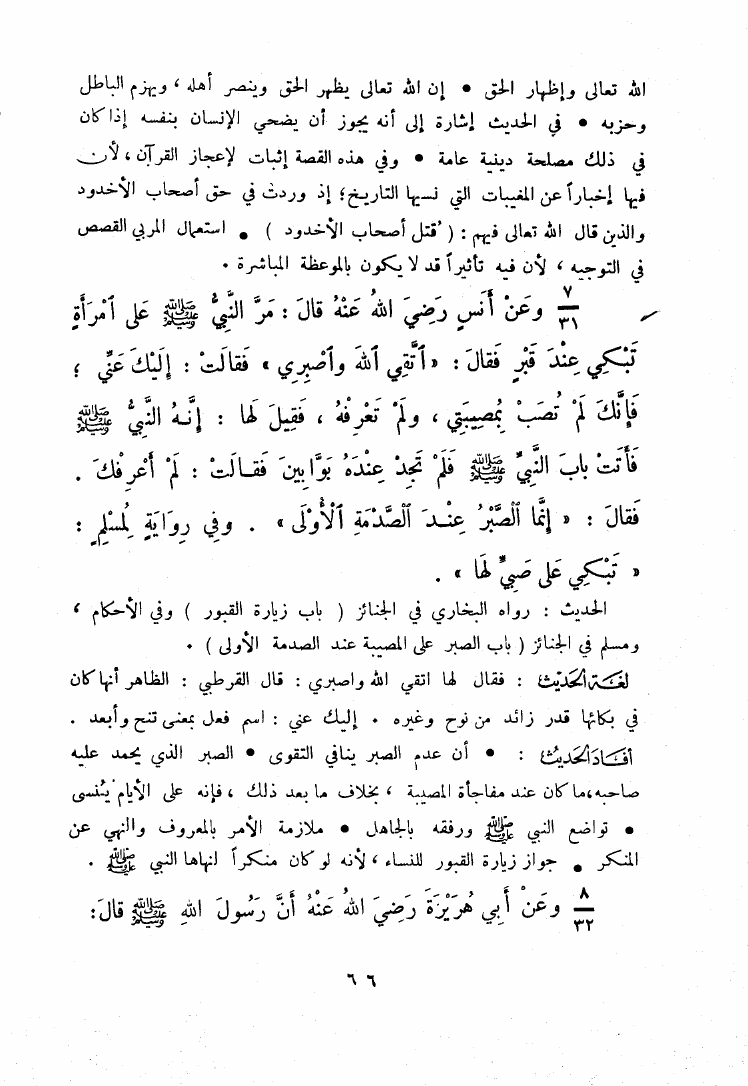 الله تعالى وإظهار الحق • إن الله تعالى يظهر الحق وينصر أهله ، ويهزم الباطل
وحزبه • في الحديث إشارة إلى أنه يجوز أن يضحي الإنسان بنفسه إذا كان
في ذلك مصلحة دينية عامة • وفي هذه القصة إثبات لإعجاز القرآن ، لأن
فيها إخباراً عن المغيبات التي نسيها التاريخ؛ إذ وردت في حق أصحاب الأخدود
والذين قال الله تعالى فيهم : ( قُتل أصحاب الأخدود ) • استعمال المربي القصص
في التوجيه ، لأن فيه تأثيراً قد لا يكون بالموعظة المباشرة .
٧/٣١ وعَنْ أَنَسٍ رَضِيَ اللهُ عَنْهُ قالَ : مَرَّ النَّبِيُّ ﷺ عَلى ٱمْرَأَةٍ
تَبْكِي عِنْدَ قَبْرٍ فَقالَ : « ٱتَّقِي ٱللهَ وٱصْبِرِي » فَقالَتْ : إِلَيْكَ عَنِّي ؛
فَإِنَّكَ لَمْ تُصَبْ بِمُصِيبَتِي ، ولَمْ تَعْرِفْهُ ، فَقِيلَ لَها : إِنَّهُ النَّبِيُّ ﷺ
فَأَتَتْ بابَ النَّبِيِّ ﷺ فَلَمْ تَجِدْ عِنْدَهُ بَوَّابِينَ فَقـالَتْ : لَمْ أَعْرِفْكَ .
فَقالَ : « إِنَّما ٱلصَّبْرُ عِنْـدَ ٱلصَّدْمَةِ ٱلْأُوْلَى » . وفِي رِوايَةٍ لِمُسْلِمٍ :
« تَبْكِي عَلى صَبِيٍّ لَها » .
الحديث : رواه البخاري في الجنائز ( باب زيارة القبور ) وفي الأحكام ،
ومسلم في الجنائز ( باب الصبر على المصيبة عند الصدمة الأولى ) .
لغة الحديث : فقال لها اتقي الله واصبري : قال القرطبي : الظاهر أنها كان
في بكائها قدر زائد من نوح وغيره . إليك عني : اسم فعل بمعنى تنح وأبعد .
أفاد الحديث : • أن عدم الصبر ينافي التقوى • الصبر الذي يحمد عليه
صاحبه،ما كان عند مفاجأة المصيبة ، بخلاف ما بعد ذلك ، فإنه على الأيام يُنسى
• تواضع النبي ﷺ ورفقه بالجاهل • ملازمة الأمر بالمعروف والنهي عن
المنكر • جواز زيارة القبور للنساء ، لأنه لو كان منكراً لنهاها النبي ﷺ .
٨/٣٢ وعَنْ أَبِي هُرَيْرَةَ رَضِيَ اللهُ عَنْهُ أَنَّ رَسُولَ اللهِ ﷺ قالَ:
٦٦